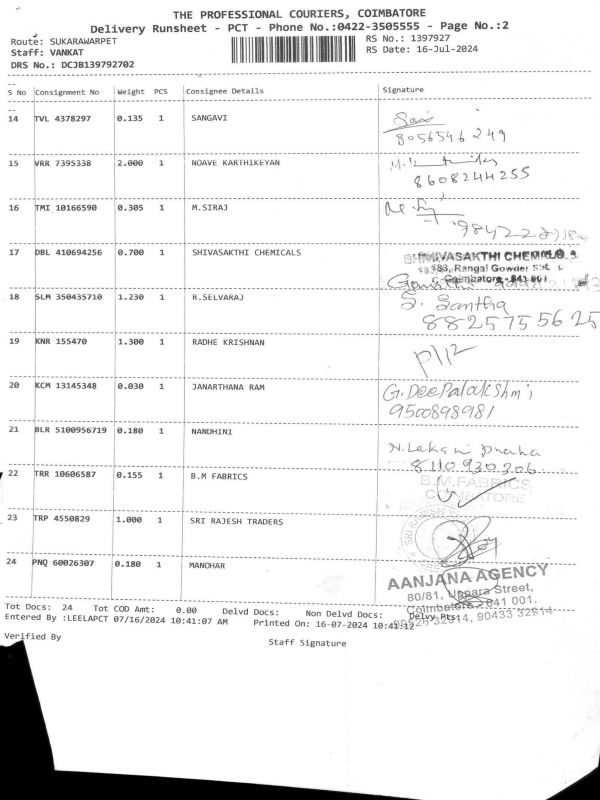 THE PROFESSIONAL COURIERS, COIMBATORE
Delivery Runsheet - PCT - Phone No.:0422-3505555 - Page No.:2
Route: SUKARAWARPET
RS No.: 1397927
Staff: VANKAT
RS Date: 16-Jul-2024
DRS No.: DCJB139792702
S No Consignment No Weight PCS Consignee Details Signature
14 TVL 4378297 0.135 1 SANGAVI
8056546249
15 VRR 7395338 2.000 1 NOAVE KARTHIKEYAN
8608244255
16 TMI 10166590 0.305 1 M.SIRAJ
17 DBL 410694256 0.700 1 SHIVASAKTHI CHEMICALS
SHIVASAKTHI CHEMICALS
183, Rangai Gowder Street
Coimbatore - 641 001
18 SLM 350435710 1.230 1 R.SELVARAJ
S. Santha
8825755625
19 KNR 155470 1.300 1 RADHE KRISHNAN
20 KCM 13145348 0.030 1 JANARTHANA RAM
G.Deepalakshmi
9500898981
21 BLR 5100956719 0.180 1 NANDHINI
8110930306
22 TRR 10606587 0.155 1 B.M FABRICS
B.M.FABRICS
COIMBATORE
23 TRP 4550829 1.000 1 SRI RAJESH TRADERS
24 PNQ 60026307 0.180 1 MANOHAR
AANJANA AGENCY
80/81, Uppara Street,
Coimbatore - 641 001.
90433 32914
Tot Docs: 24 Tot COD Amt: 0.00 Delvd Docs: Non Delvd Docs: Delvy Pts:
Entered By :LEELAPCT 07/16/2024 10:41:07 AM Printed On: 16-07-2024 10:41:12
Verified By
Staff Signature